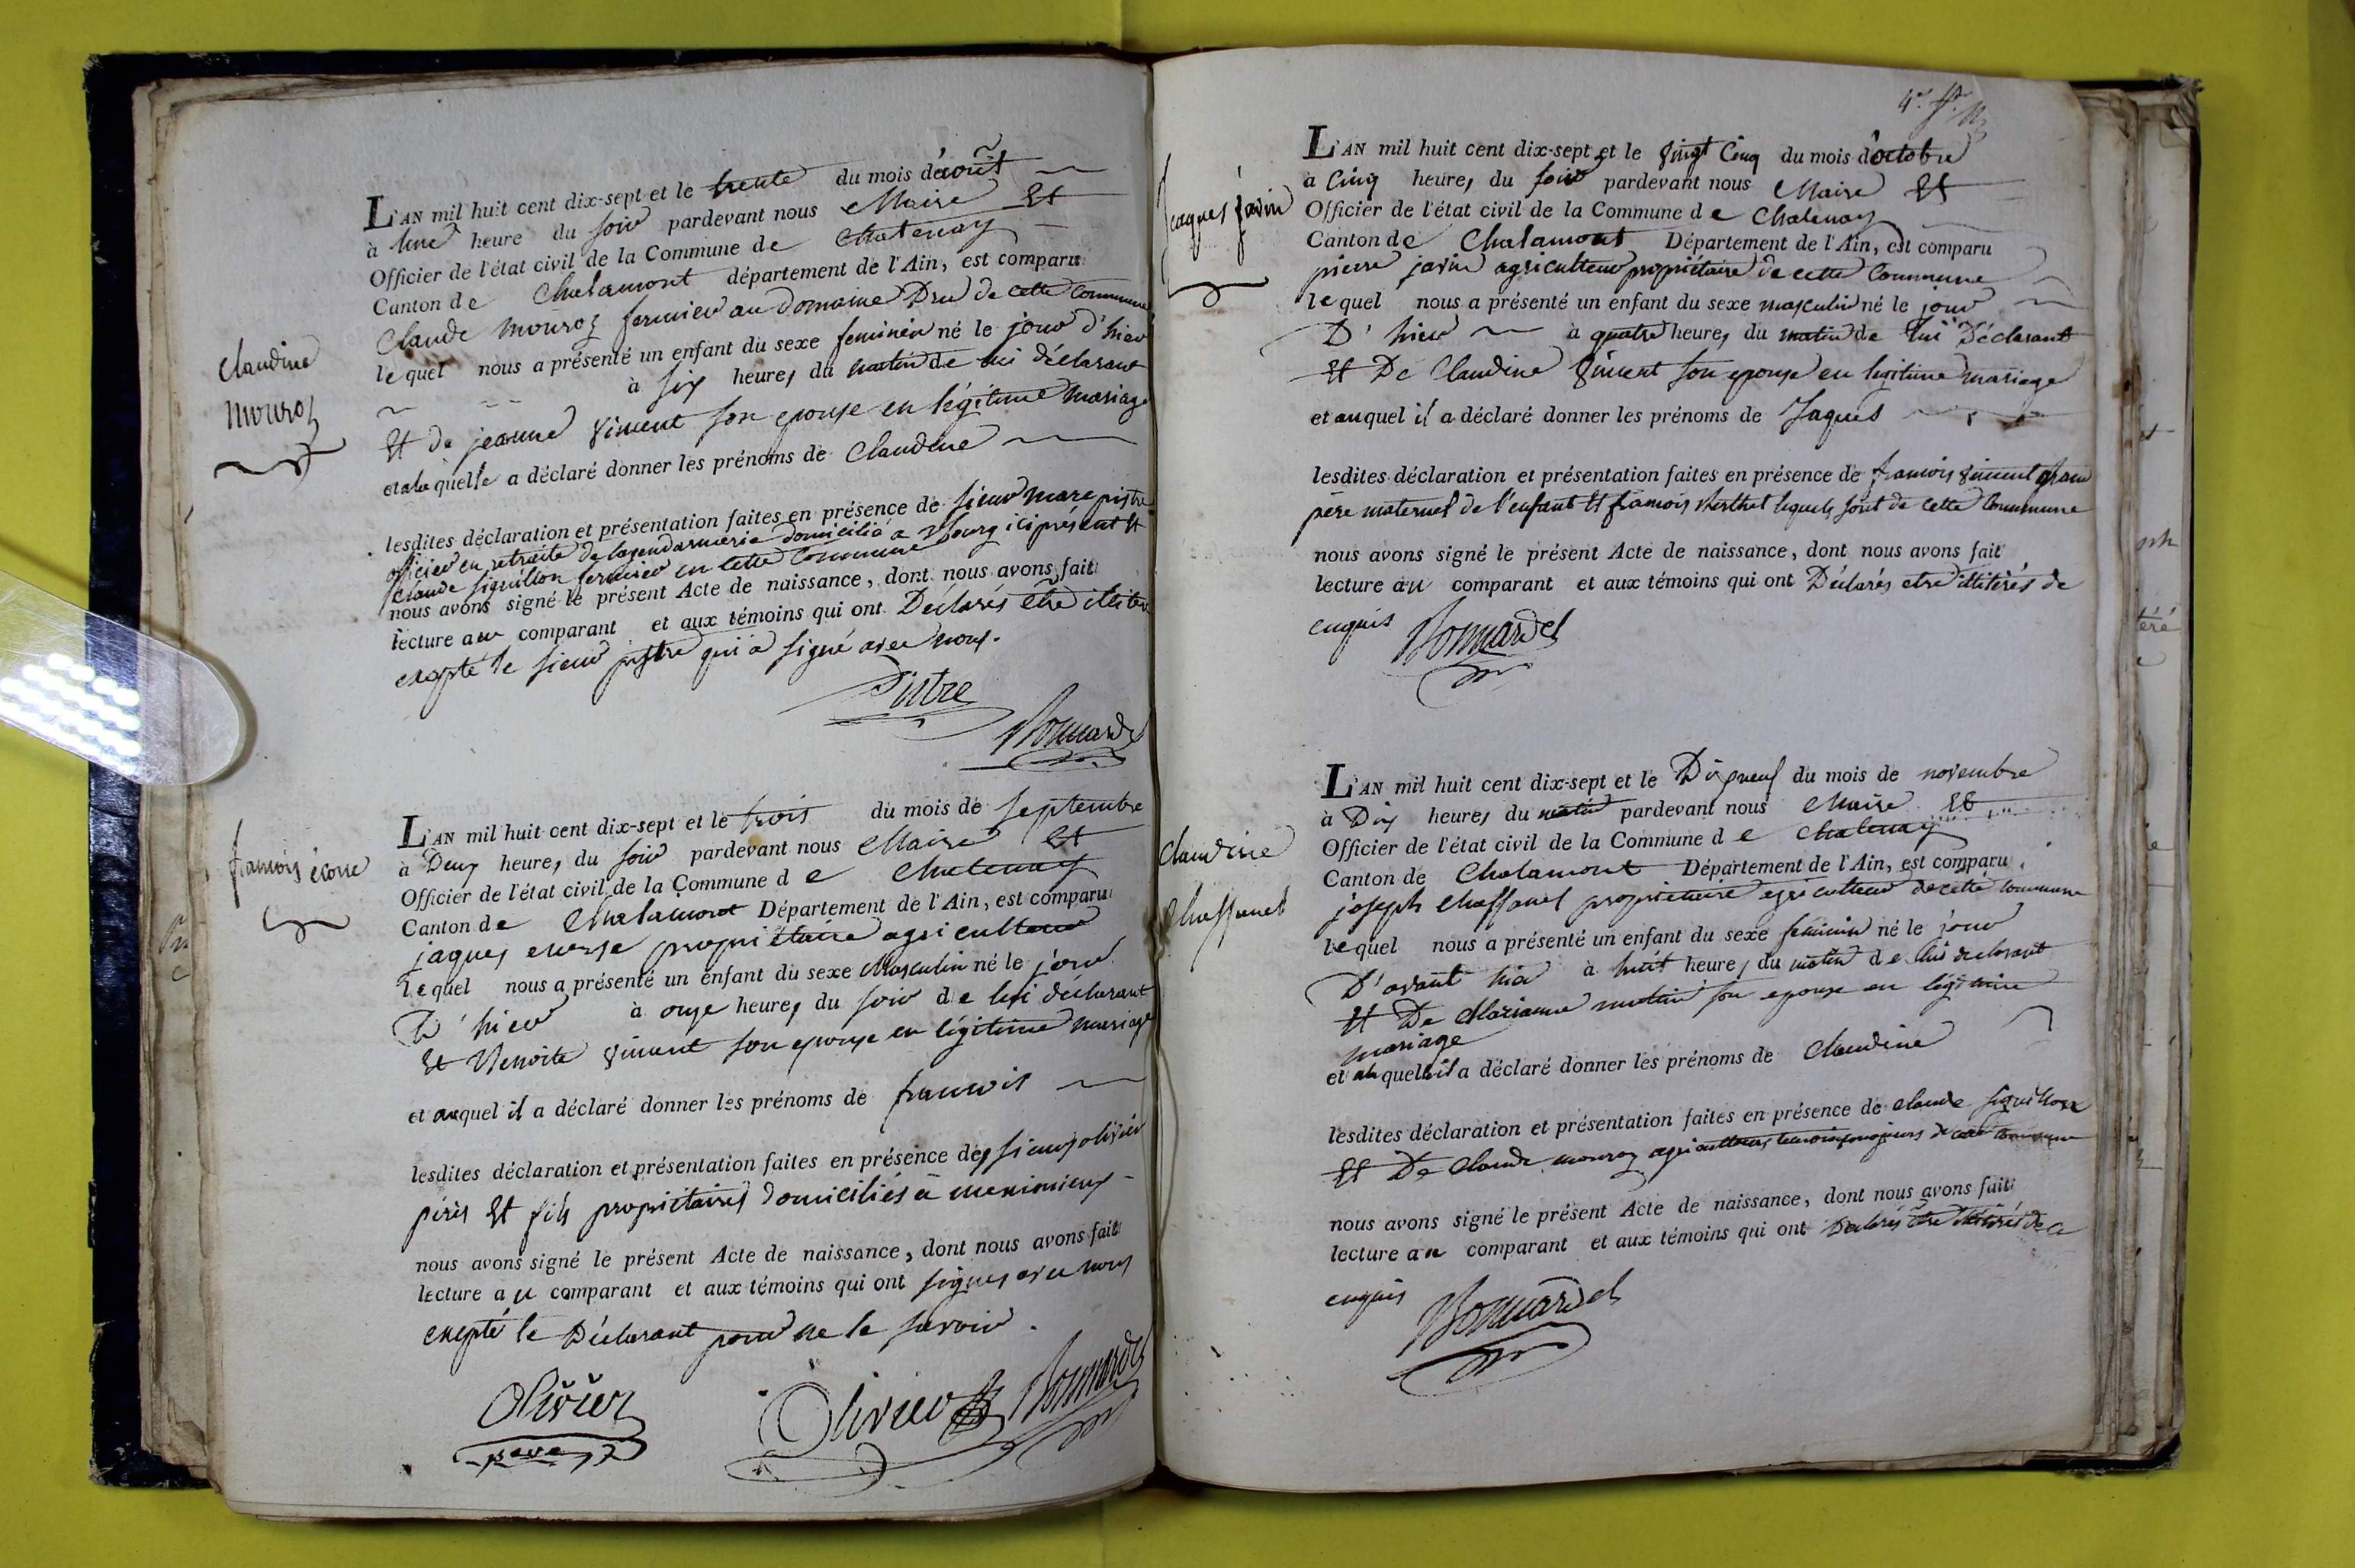 Claudine
Mouroz
L'AN mil huit cent dix-sept et le trente du mois d'août
à Une heure du soir pardevant nous Maire Et
Officier de l'état civil de la Commune de Chatenay
Canton de Chalamont département de l'Ain, est comparu
Claude Mouroz fermier au domaine Dru de cette Commune
lequel nous a présenté un enfant du sexe feminin né le jour d'hier
à six heures du matin de lui déclarant
Et de jeanne Vincent son epouse en légitime mariage
et à laquelle a déclaré donner les prénoms de Claudine
lesdites déclaration et présentation faites en présence de sieur Marc pistre
officier en retraite de la gendarmerie domicilié a Bourg ici présent Et
Claude siguillon fermier en cette Commune
nous avons signé le présent Acte de naissance, dont nous avons fait
lecture au comparant et aux témoins qui ont Déclarés etre illiteré
exepté le sieur pistre qui a signé avec nous.
Pistre
Bonnardel
françois écosse
L'AN mil huit cent dix-sept et le trois du mois de septembre
à Deux heures du soir pardevant nous Maire Et
Officier de l'état civil de la Commune de Chatenay
Canton de Chalamont Département de l'Ain, est comparu
jaques ecosse propriétaire agriculteur
lequel nous a présenté un enfant du sexe Masculin né le jour
D'hier à onze heures du soir de lui declarant
Et Benoite Vincent son epouse en légitime mariage
et auquel il a déclaré donner les prénoms de francois
lesdites déclaration et présentation faites en présence des sieurs olivier
pères Et fils propriétaires domiciliés à meximieux
nous avons signé le présent Acte de naissance, dont nous avons fait
lecture au comparant et aux témoins qui ont signés avec nous
exepté le Déclarant pour ne le savoir.
Olivier
pere
Olivier fils
Bonnardel
Jaques javin
L'AN mil huit cent dix-sept et le Vingt Cinq du mois d'octobre
à Cinq heures du soir pardevant nous Maire Et
Officier de l'état civil de la Commune de Chatenay
Canton de Chalamont Département de l'Ain, est comparu
pierre javin agriculteur propriétaire de cette Commune
lequel nous a présenté un enfant du sexe masculin né le jour
D'hier à quatre heures du matin de lui Déclarant
Et De Claudine Vincent son epouse en légitime mariage
et auquel il a déclaré donner les prénoms de Jaques
lesdites déclaration et présentation faites en présence de francois Vincent grand
père maternel de l'enfant Et francois Berthet lequels sont de cette Commune
nous avons signé le présent Acte de naissance, dont nous avons fait
lecture au comparant et aux témoins qui ont Déclarés etre illitérés de
enquis
Bonnardel
Claudine
Chaffanel
L'AN mil huit cent dix-sept et le Dixneuf du mois de novembre
à Dix heures du matin pardevant nous Maire Et
Officier de l'état civil de la Commune de Chatenay
Canton de Chalamont Département de l'Ain, est comparu
joseph Chaffanel propriétaire agriculteur de cette Commune
lequel nous a présenté un enfant du sexe feminin né le jour
D'avant hier à huit heures du matin de lui declarant
Et De Marianne mettin son epouse en légitime
mariage
et à laquelle il a déclaré donner les prénoms de Claudine
lesdites déclaration et présentation faites en présence de Claude siguillon
Et De Claude mouroz agriculteurs temoins majeurs de cette Commune
nous avons signé le présent Acte de naissance, dont nous avons fait
lecture au comparant et aux témoins qui ont Declarés etre illitérés de ce
enquis
Bonnardel